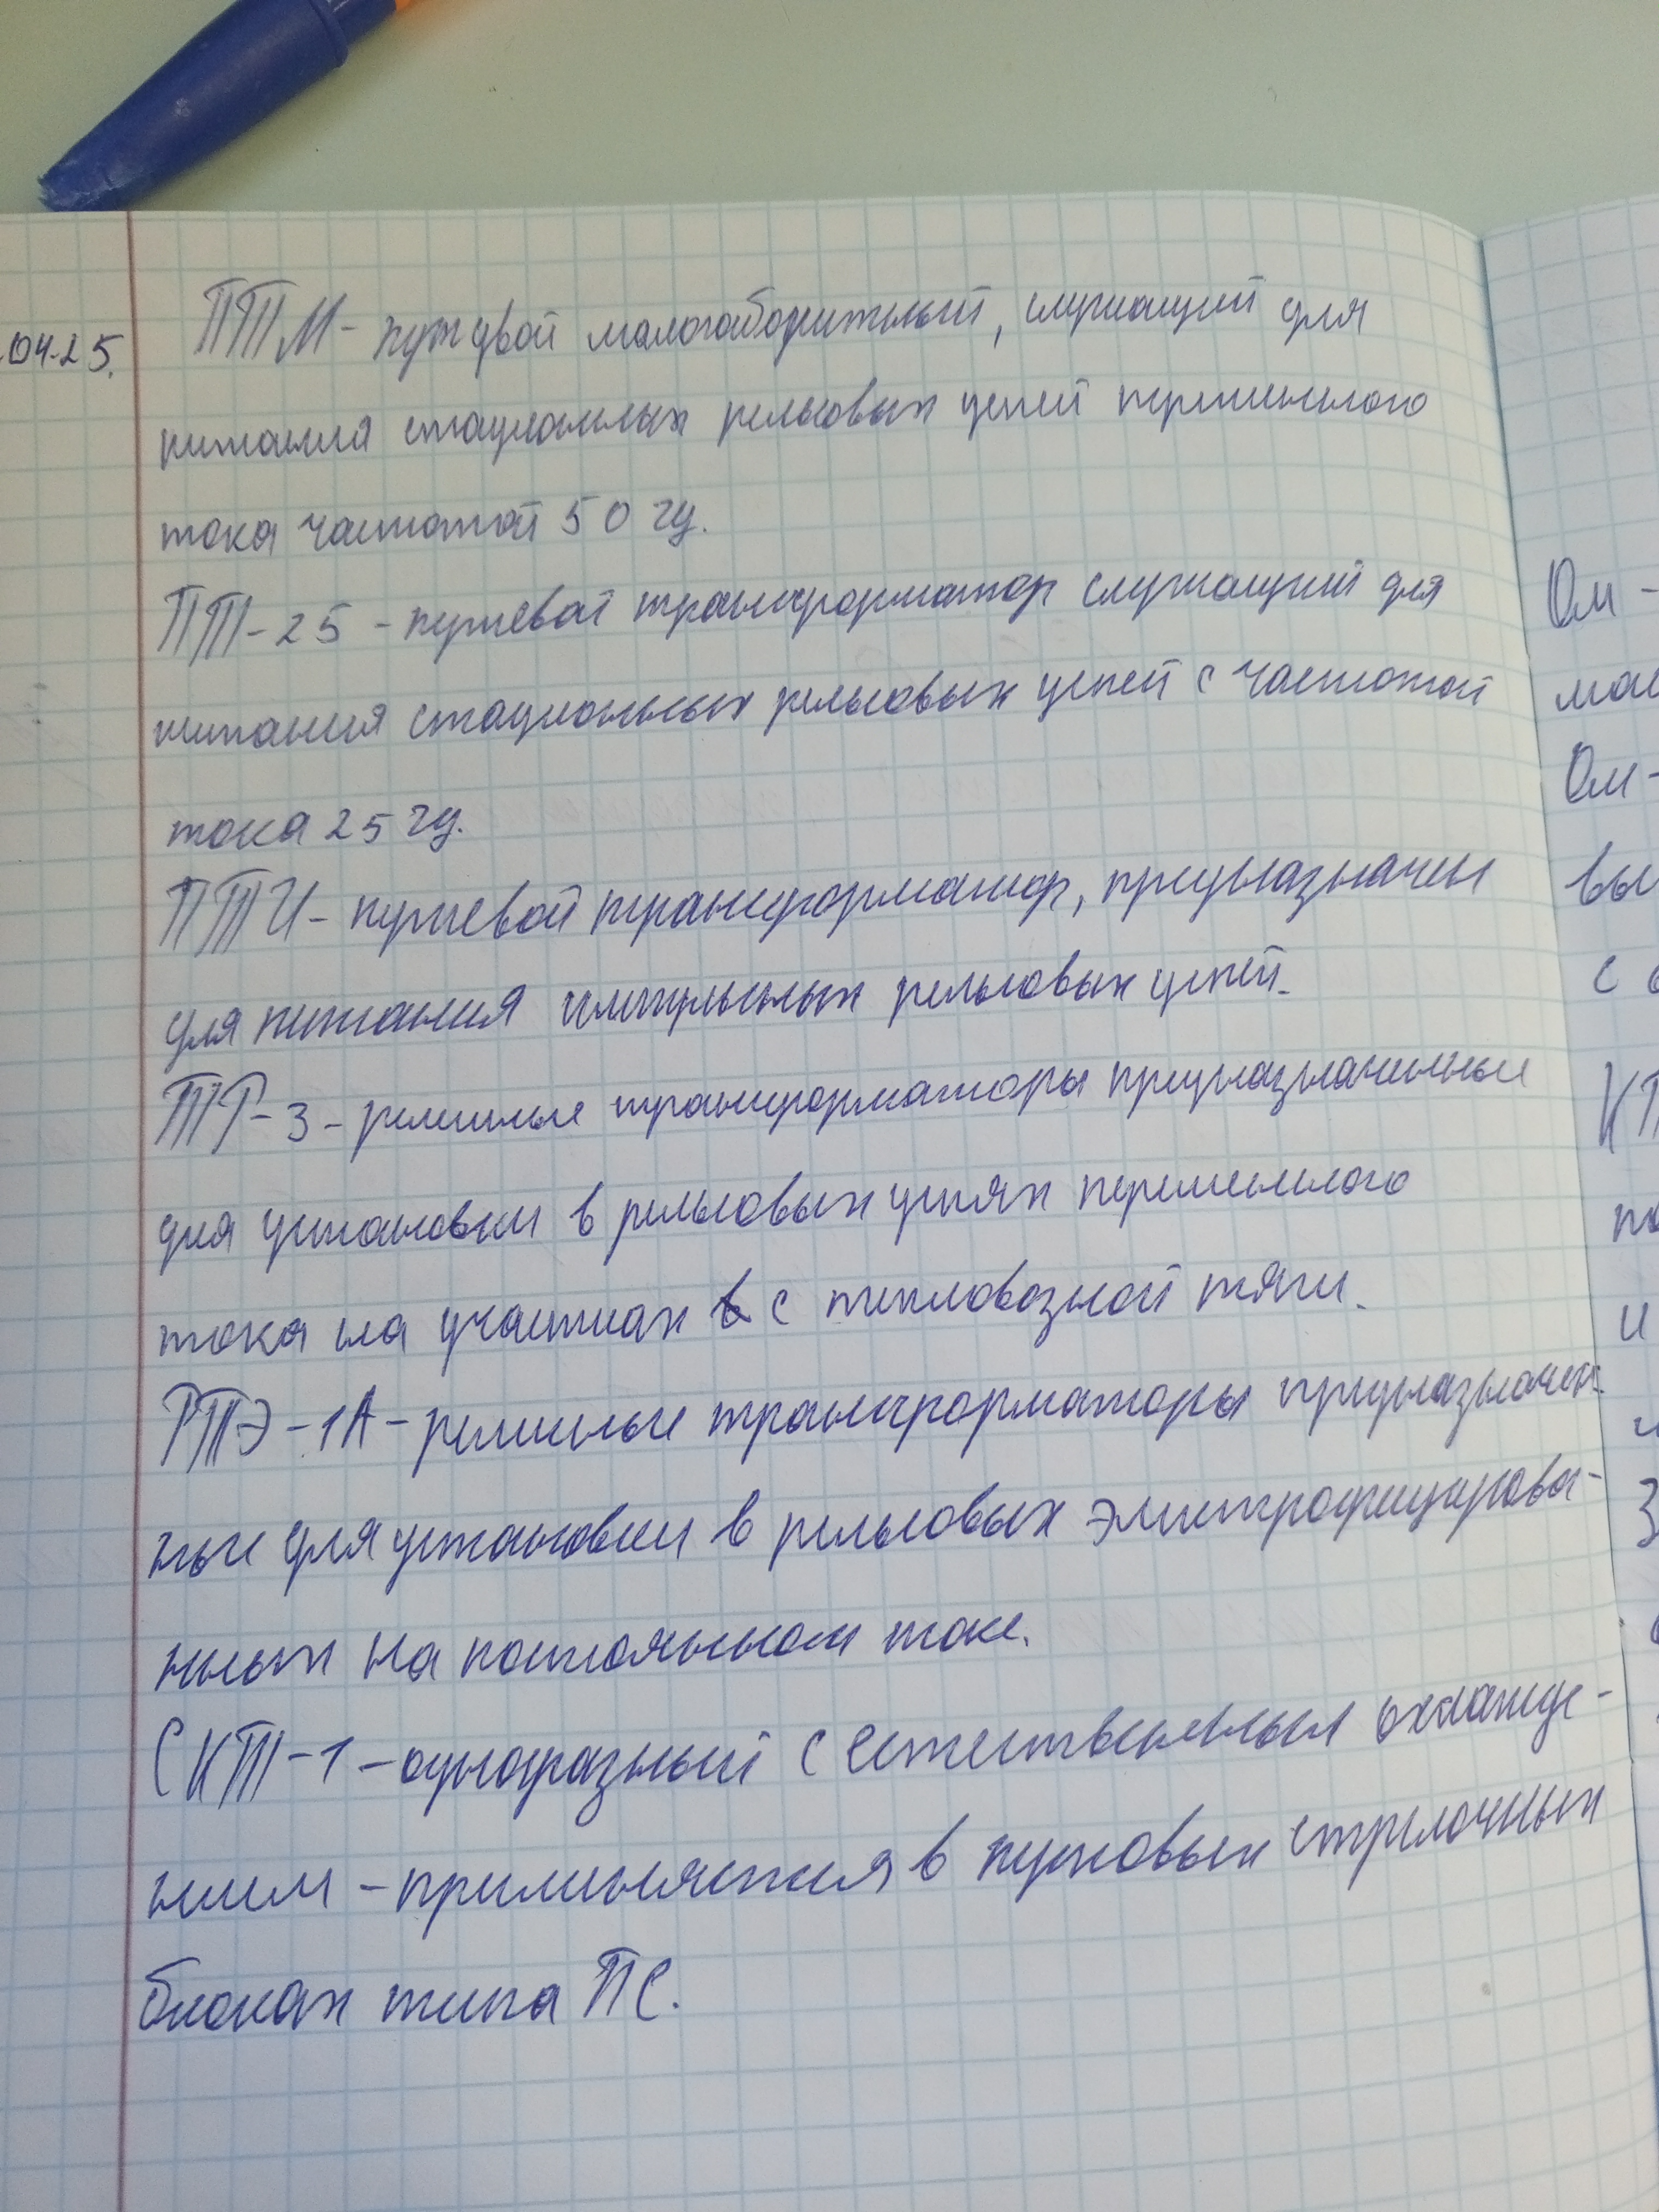 .04.25.
ПТМ - путевой малогаборитный, служащий для
питания стационных рельсовых цепей переменного
тока частотой 50 гц.
ПТ-25 - путевой трансформатор служащий для
питания стационых рельсовых цепей с частотой
тока 25 гц.
ПТИ - путевой трансформатор, предназначен
для питания импульсных рельсовых цепей.
ТР-3 - релейные трансформаторы предназначенные
для установки в рельсовых цепях переменного
тока на участках с тепловозной тяги.
РТЭ-1А - релейные трансформаторы предназначен-
ные для установки в рельсовых электрофицирова-
нных на постоянном токе.
СКТ-1 - однофазный с естественным охлажде-
нием - применяется в пусковых стрелочных
блоках типа ПС.
Ом -
Ом -
вы
с
КТ
по
и
З